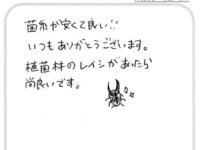 菌糸が安くて良い!!
いつもありがとうございます。
植菌材のレイシがあったら
尚良いです。